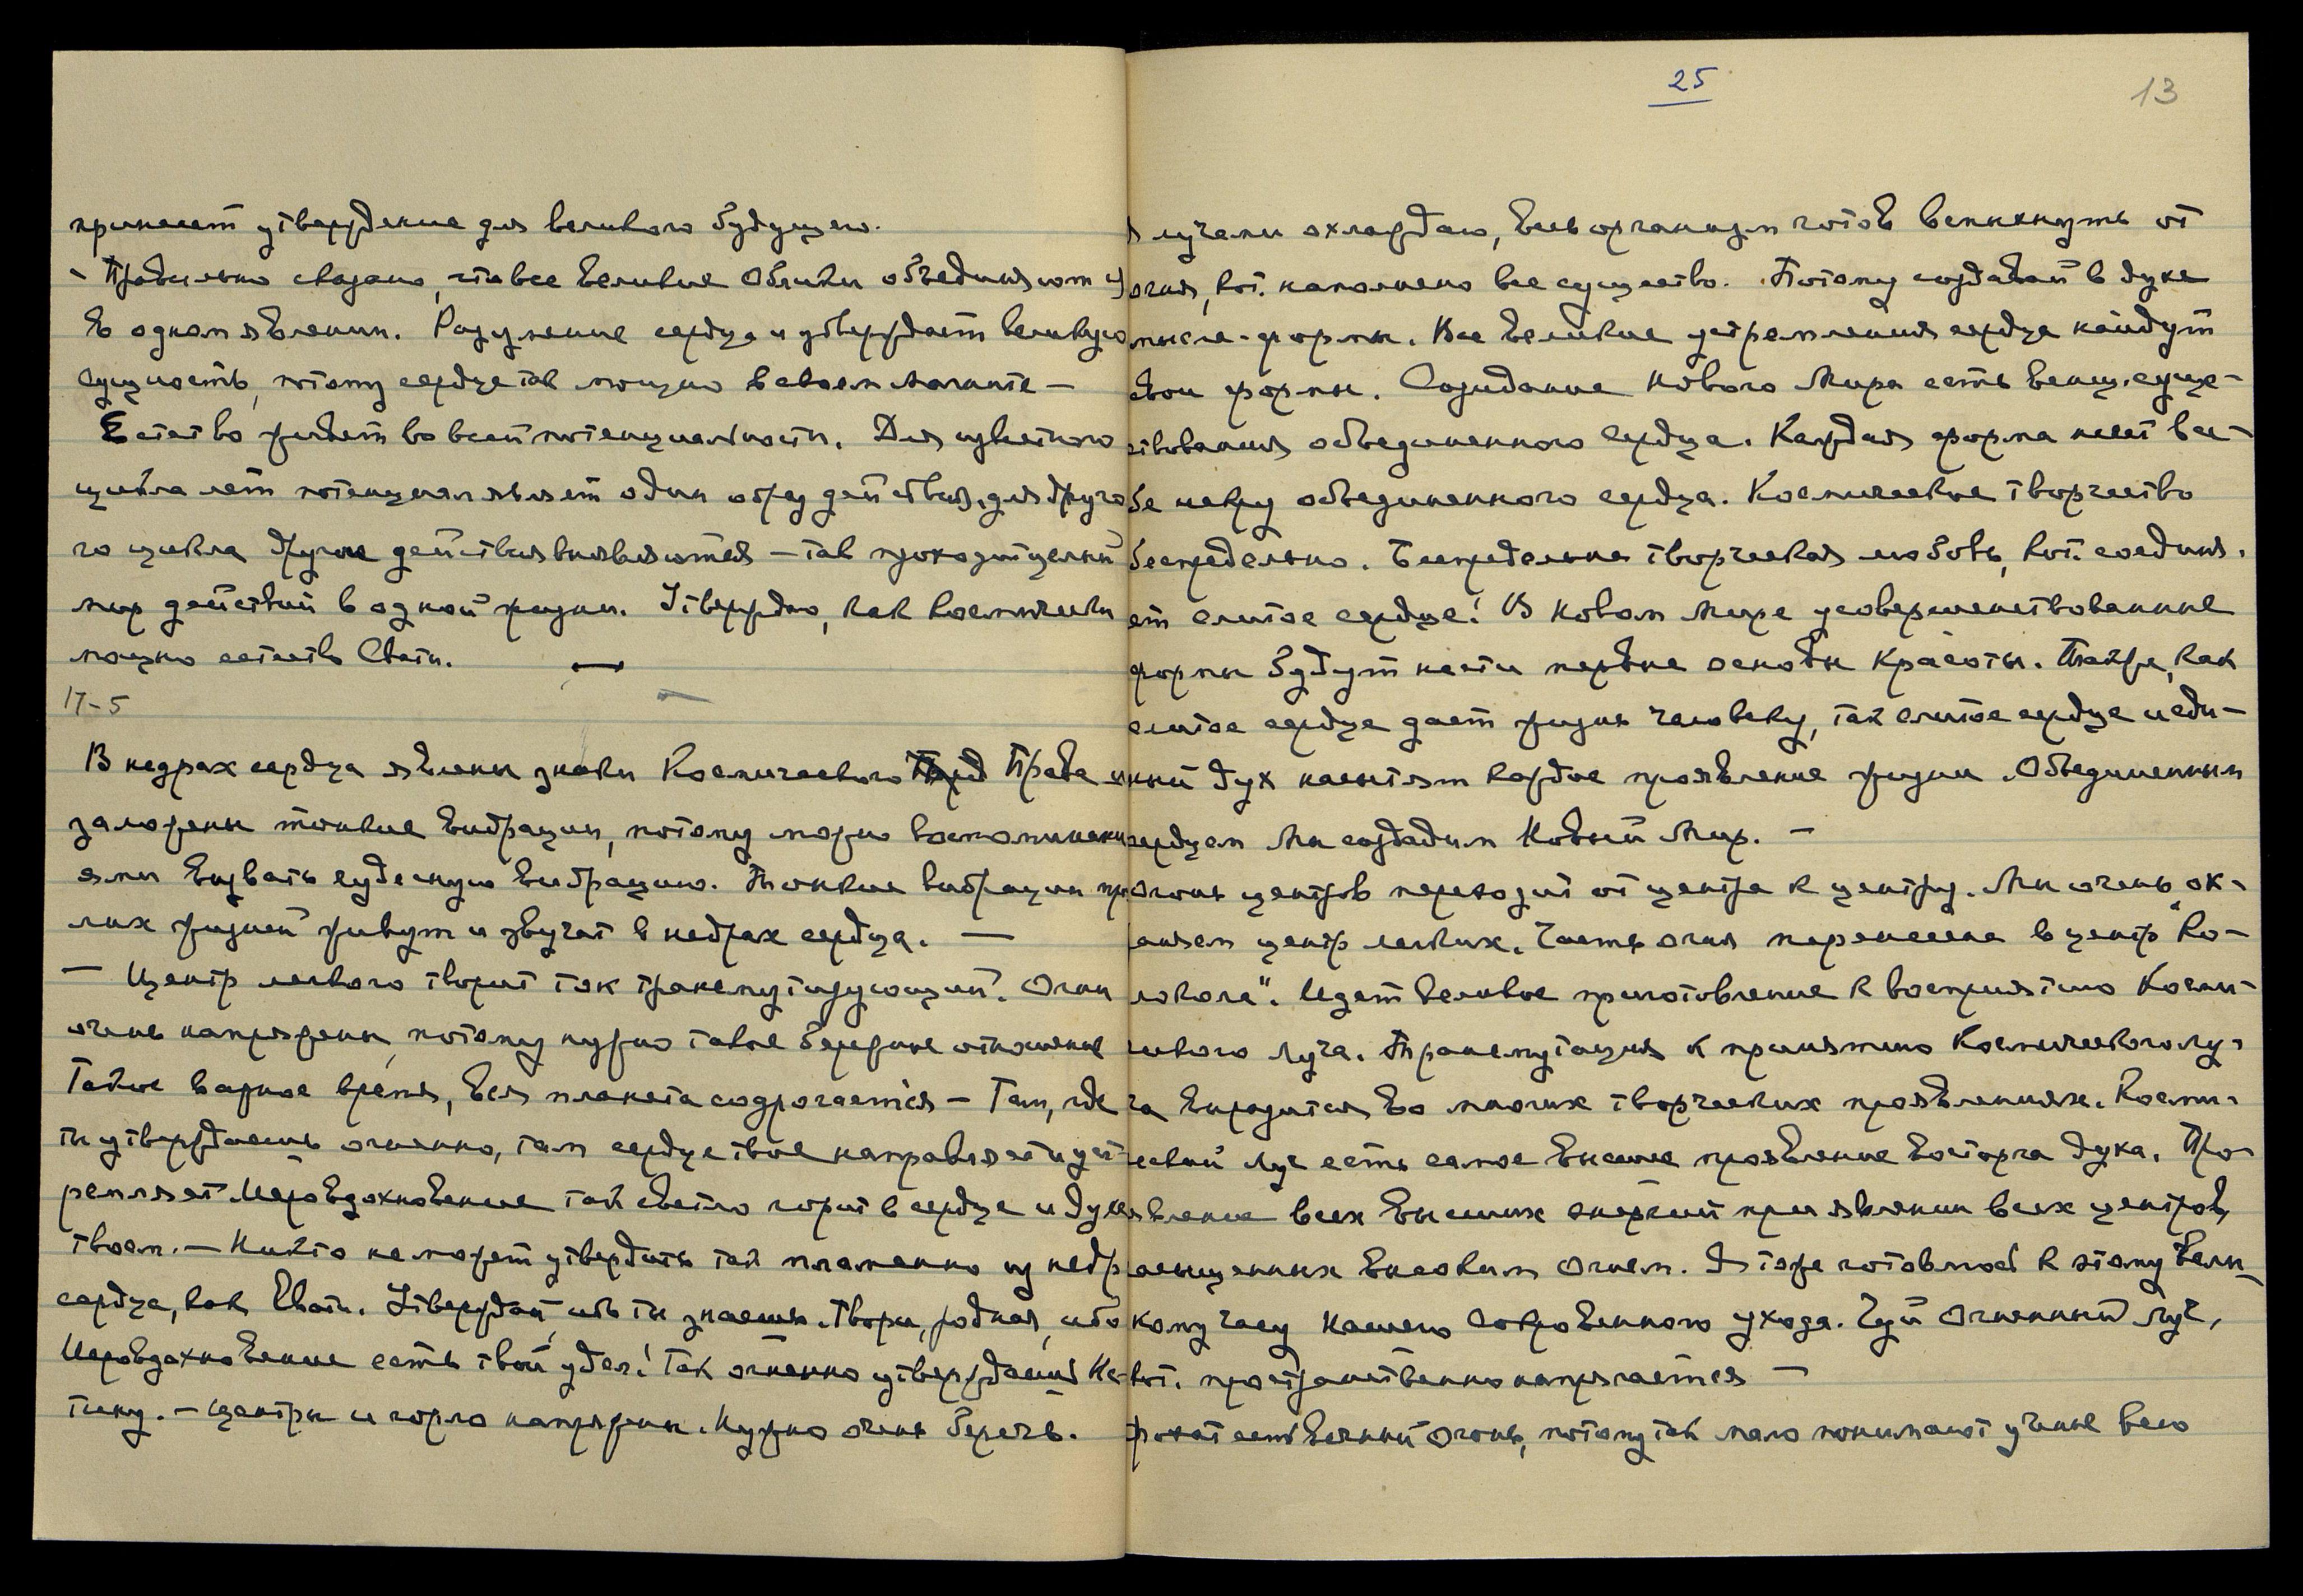 принесет утверждение для великого будущего.
- Правильно сказано, что все великие Облики объединяют
в одном явлении. Разумение сердца и утверждает великую
сущность, потому сердце так мощно в своем магните -
Естество живет во всей потенциальности. Для известного
цикла лет потенциал являет один образ действия, для друго
го цикла другие действия выявляются - так проходит целый
мир действий в одной жизни. Утверждаю, как космически
мощно естество Свати.
17-5
В недрах сердца явлены знаки Космического Права и
заложены тонкие вибрации, потому можно воспоминани
ями вызвать чудесную вибрацию. Тонкие вибрации
лых жизней живут и звучат в недрах сердца. -
- Центр легкого творит ток трансмутирующий. Огни
очень напряжены, потому нужно такое бережное отношение
Такое важное время, вся планета содрогается - Там, где
ты утверждаешь огненно, там сердце твое направляет и уст
ремляет Мировдохновение так светло горит в сердце и духе
твоем. - Никто не может утвердить так пламенно из недр
сердца, как Свати. Утверждай, ибо ты знаешь. Твори, родная, ибо
Мировдохновение есть твой удел! Так огненно утверждаешь Ис-
тину. - Центры и горло напряжены. Нужно очень беречь.
25
13
лучами охлаждаю, весь организм готов вспыхнуть от
огня, кот. наполнено все существо. Потому создавай в духе
мысле-формы. Все великие устремления сердца найдут
свои формы. Созидание Нового Мира есть венец суще-
ствования объединенного сердца. Каждая форма несет в се-
бе искру объединенного сердца. Космическое творчество
беспредельно. Беспредельна творческая любовь, кот. соединя-
ет слитое сердце! В новом мире усовершенствованные
формы будут нести первые основы Красоты. Также, как
слитое сердце дает жизнь человеку, так слитое сердце и еди-
ный дух насытят каждое проявление жизни. Объединенным
сердцем Мы создадим Новый Мир. -
Огонь центров переходит от центра к центру. Мы очень ох-
раняем центр легких. Часть огня перенесена в центр "Ко-
локола". Идет великое приготовление к восприятию Косми-
ческого Луча. Трансмутация к принятию Космического Лу-
ча выразится во многих творческих проявлениях. Косми-
ческий Луч есть самое высшее проявление восторга духа. Про-
явление всех высших энергий при явлении всех центров,
насыщенных высоким Огнем. Я тоже готовлюсь к этому вели-
кому часу Нашего Сокровенного ухода. Чуй Огненный Луч,
кот. пространственно напрягается -
Фохат есть вечный Огонь, потому так мало понимают ученые всю